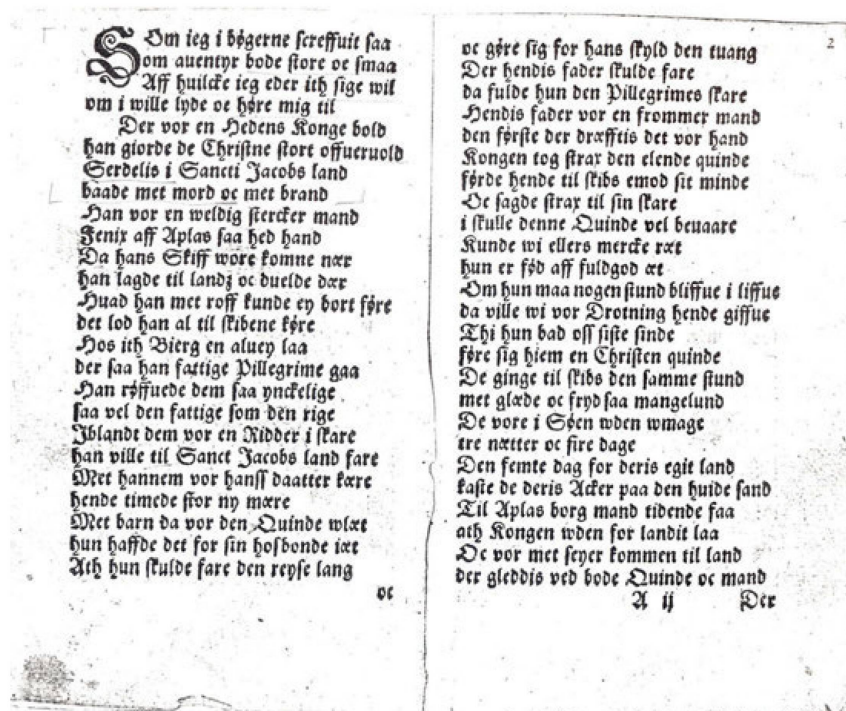 SOm ieg i bøgerne screffuit saa
om auentyr bode store oc smaa
Aff huilcke ieg eder ith sige wil
om i wille lyde oc høre mig til
Der vor en Hedens Konge bold
han giorde de Christne stort offueruold
Serdelis i Sancti Jacobs land
baade met mord oc met brand
Han vor en weldig stercker mand
Fenix aff Aplas saa hed hand
Da hans Skiff wore komne nær
han lagde til landz oc duelde dær
Huad han met roff kunde ey bort føre
det lod han al til skibene køre
Hos ith Bierg en aluey laa
der saa han fattige Pillegrime gaa
Han røffuede dem saa ynckelige
saa vel den fattige som den rige
Iblandt dem vor en Ridder i skare
han ville til Sanct Jacobs land fare
Met hannem vor hanss daatter kære
hende timede stor ny mære
Met barn da vor den Quinde wlæt
hun haffde det for sin hosbonde iæt
Ath hun skulde fare den reyse lang
oc
2
oc gøre sig for hans skyld den tuang
Der hendis fader skulde fare
da fulde hun den Pillegrimes skare
Hendis fader vor en frommer mand
den første der dræfftis det vor hand
Kongen tog strax den elende quinde
førde hende til skibs emod sit minde
Oc sagde strax til sin skare
i skulle denne Quinde vel beuaare
Kunde wi ellers mercke ræt
hun er fød aff fuldgod æt
Om hun maa nogen stund bliffue i liffue
da ville wi vor Drotning hende giffue
Thi hun bad oss siste sinde
føre sig hiem en Christen quinde
De ginge til skibs den samme stund
met glæde oc fryd saa mangelund
De vore i Søen wden wmage
tre nætter oc fire dage
Den femte dag for deris egit land
kaste de deris Acker paa den huide sand
Til Aplas borg mand tidende faa
ath Kongen wden for landit laa
Oc vor met seyer kommen til land
der gleddis ved bode Quinde oc mand
A ij Der